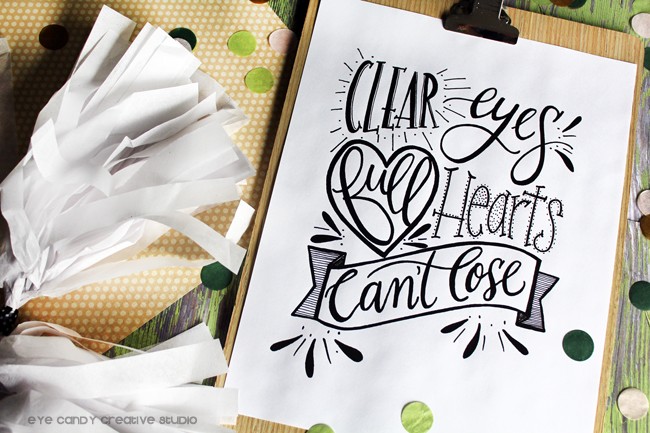 CLEAR eyes
full Hearts
Can't lose
EYE CANDY CREATIVE STUDIO